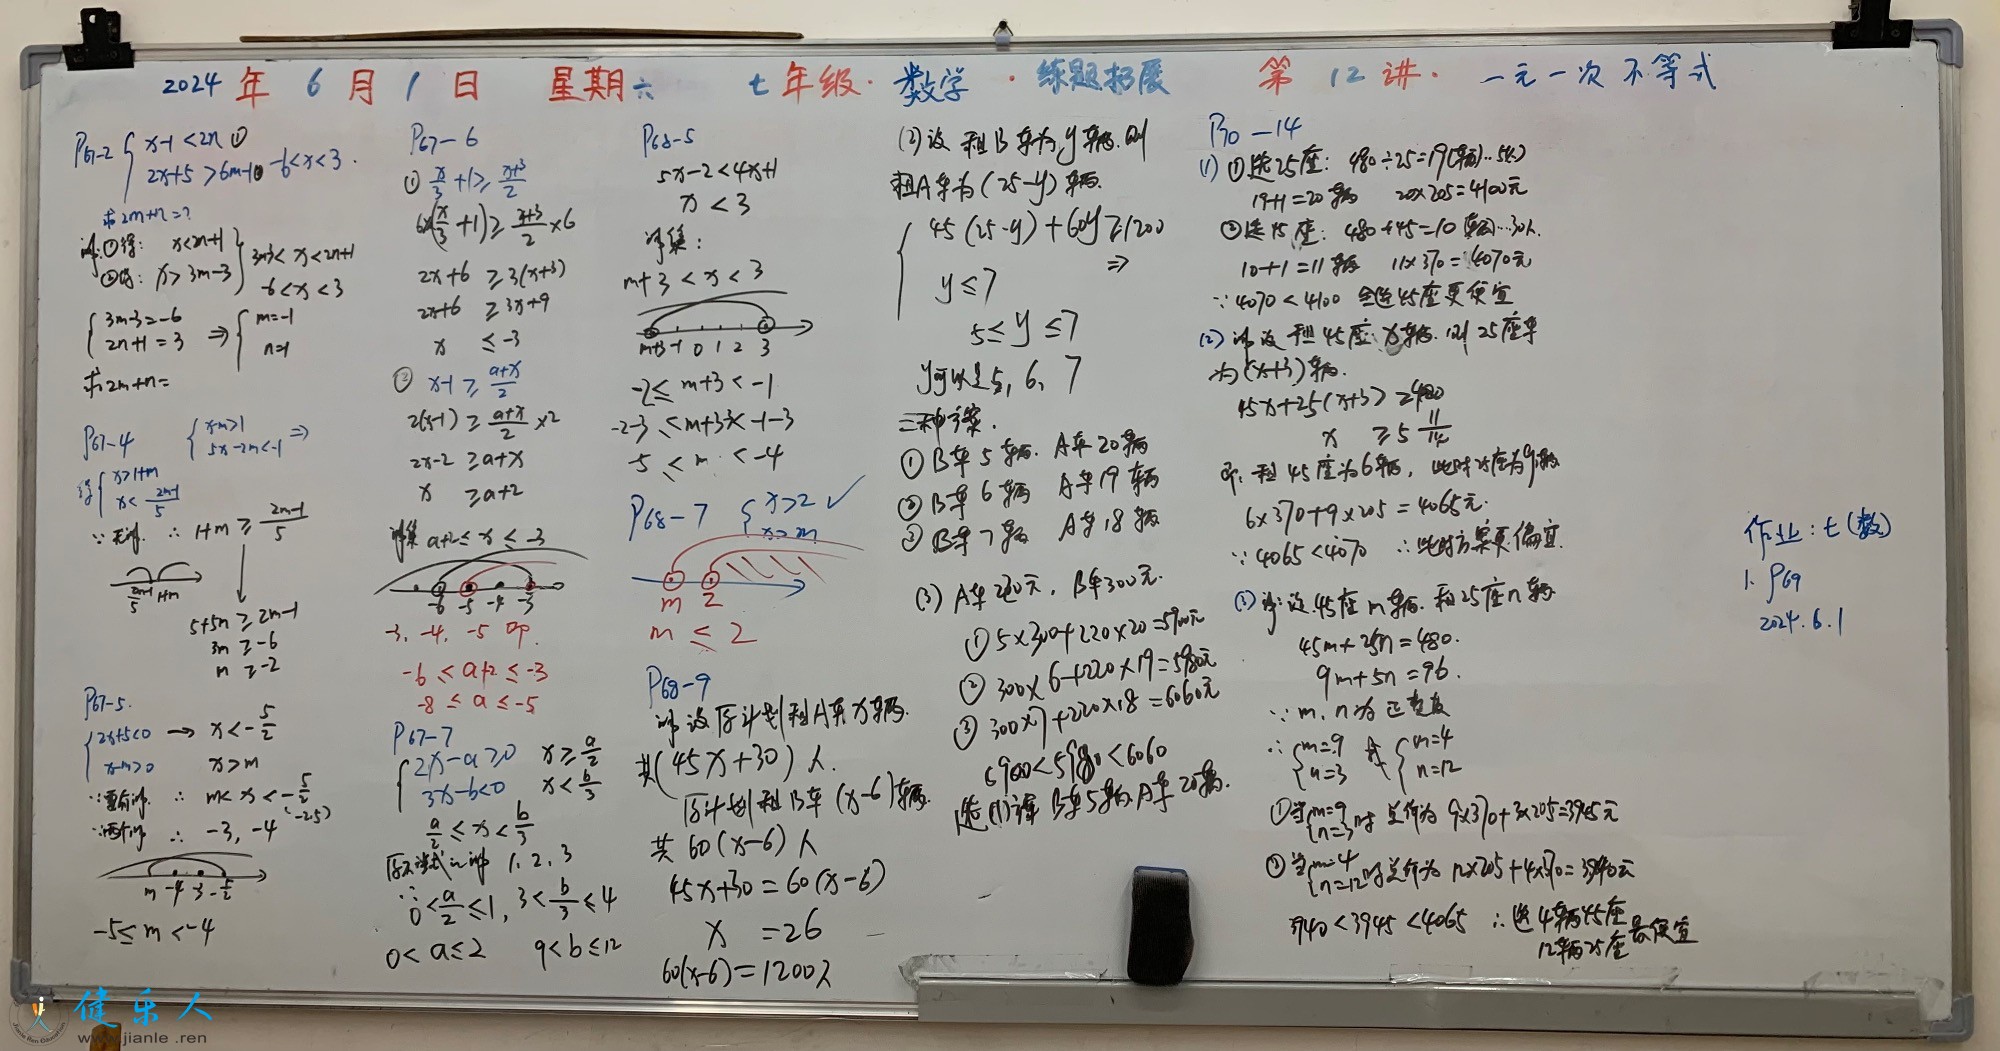 2024年6月1日 星期六 七年级·数学·练题拓展 第12讲·一元一次不等式
P67-2 { x-1<2n ①
2x+5>6m-1② -6<x<3.
求2m+n=?
解:①得: x<2n+1
②得: x>3m-3
3m-3<x<2n+1
-6<x<3
{ 3m-3=-6
2n+1=3 ⇒ { m=-1
n=1
求2m+n=
P67-4 { x-m>1
5x-2m<-1 ⇒
得 { x>1+m
x<(2m-1)/5
∵无解. ∴ 1+m≥(2m-1)/5
(2m-1)/5 1+m
5+5m≥2m-1
3m≥-6
m≥-2
P67-5.
{ 2x+5<0 → x<-5/2
x-m>0 x>m
∵有解. ∴ m<x<-5/2
(-2.5)
∵两个解 ∴ -3, -4
m -4 -3 -5/2
-5≤m<-4
P67-6
① x/3+1≥(x+3)/2
6×(x/3+1)≥(x+3)/2×6
2x+6≥3(x+3)
2x+6≥3x+9
x≤-3
② x-1≥(a+x)/2
2(x-1)≥(a+x)/2×2
2x-2≥a+x
x≥a+2
解集 a+2≤x≤-3
-6 -5 -4 -3
-3, -4, -5 即.
-6≤a+2≤-3
-8≤a≤-5
P67-7
{ 2x-a≥0 x≥a/2
3x-b<0 x<b/3
a/2≤x<b/3
原不等式的解 1, 2, 3
∴ 0<a/2≤1, 3<b/3≤4
0<a≤2 9<b≤12
P68-5
5x-2<4x+1
x<3
解集:
m+3<x<3
m+3 -1 0 1 2 3
-2≤m+3<-1
-2-3≤m+3-3<-1-3
-5≤m<-4
P68-7 { x>2 ✓
x>m
m 2
m≤2
P68-9
解设原计划租A车x辆.
共(45x+30)人.
原计划租B车(x-6)辆.
共60(x-6)人
45x+30=60(x-6)
x=26
60(x-6)=1200人
(2)设租B车为y辆.则
租A车为(25-y)辆.
{ 45(25-y)+60y≥1200
⇒
y≤7
5≤y≤7
y可以是5, 6, 7
三种方案.
① B车5辆. A车20辆
② B车6辆 A车19辆
③ B车7辆 A车18辆
(3) A车220元, B车300元.
① 5×300+220×20=5900元
② 300×6+220×19=5980元
③ 300×7+220×18=6060元
5900<5980<6060
选(1)方案 B车5辆.A车20辆.
P70-14
(1) ①选25座: 480÷25=19(辆)...5(人)
19+1=20辆 20×205=4100元
②选45座: 480÷45=10辆...30人.
10+1=11辆 11×370=4070元
∵4070<4100 全选45座更便宜
(2) 解设租45座x辆.则25座车
为(x+3)辆.
45x+25(x+3)≥480
x≥5 11/14
即:租45座为6辆, 此时25座为9辆
6×370+9×205=4065元.
∵4065<4070 ∴此时方案更偏宜.
(3) 解:设.45座m辆.和25座n辆
45m+25n=480.
9m+5n=96.
∵m, n为正整数
∴ { m=9
n=3 或 { m=4
n=12
①当{ m=9
n=3 时 总价为 9×370+3×205=3945元
②当{ m=4
n=12 时总价为 12×205+4×370=3940元
3940<3945<4065 ∴选4辆45座
12辆25座 最便宜
作业:七(数)
1. P69
2024.6.1
健乐人
www.jianle.ren